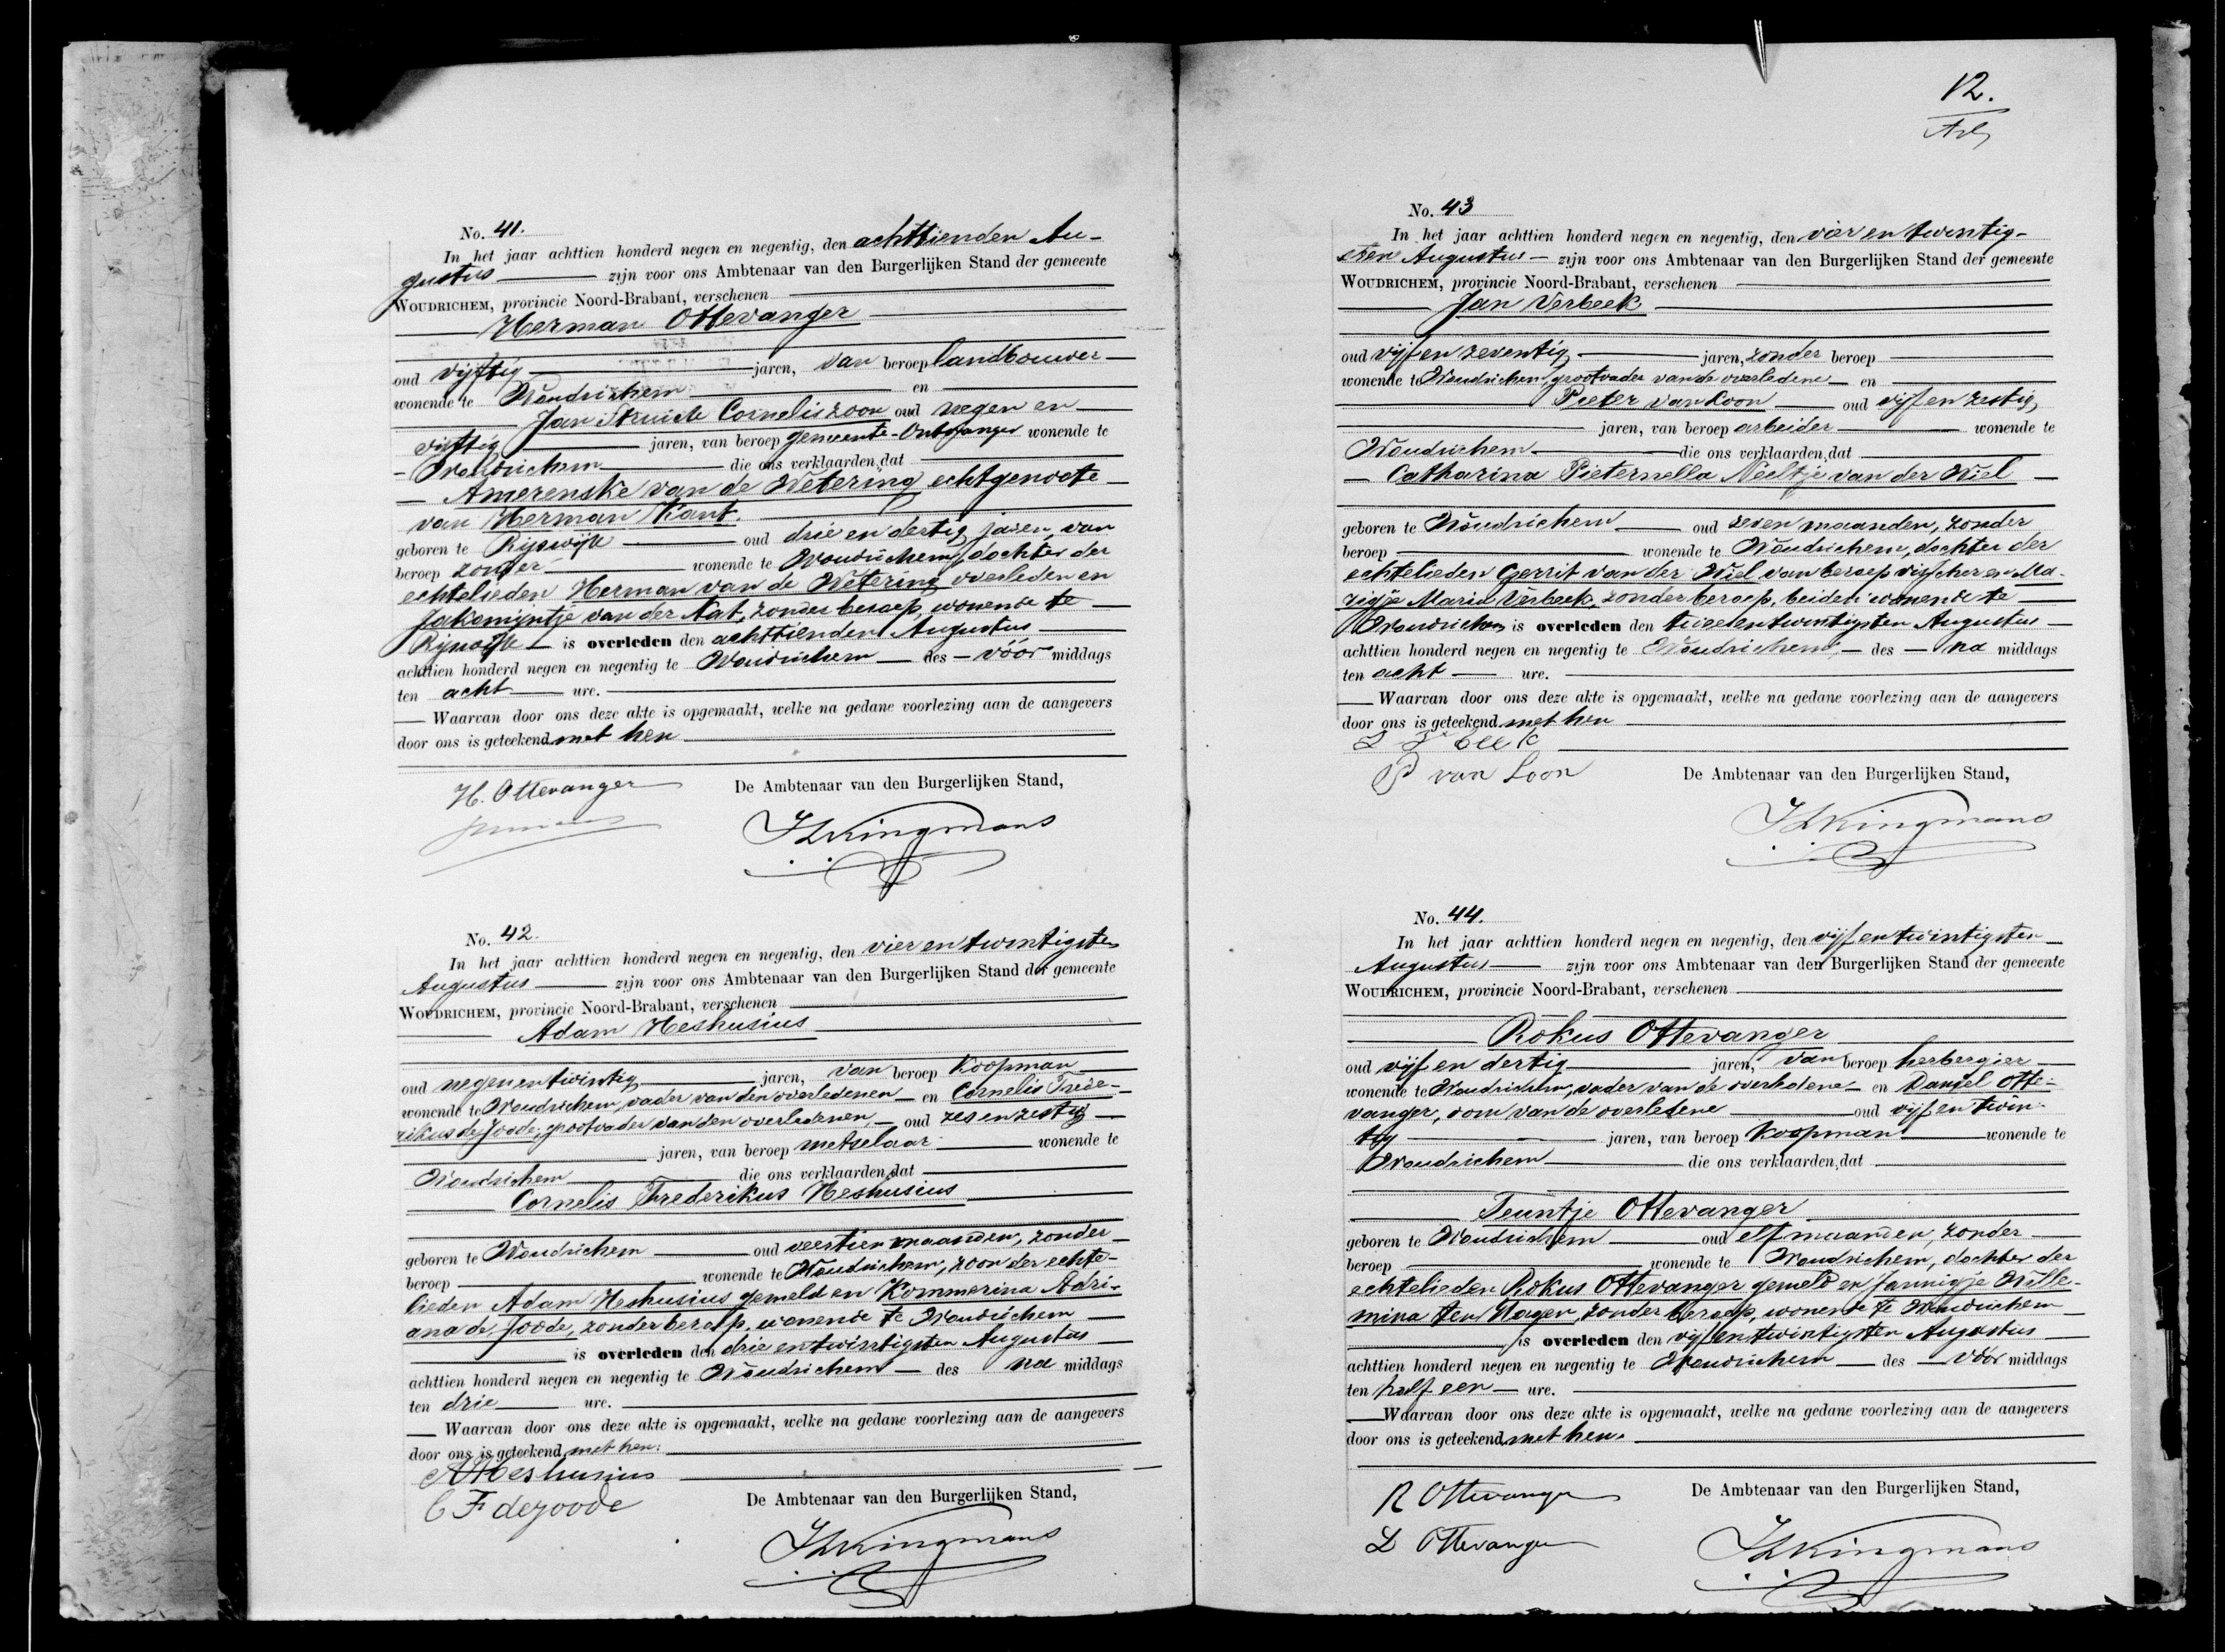 No. 41.
In het jaar achttien honderd negen en negentig, den achttienden Au-
gustus zijn voor ons Ambtenaar van den Burgerlijken Stand der gemeente
WOUDRICHEM, provincie Noord-Brabant, verschenen
Herman Ottevanger
oud vijftig jaren, van beroep landbouwer
wonende te Woudrichem en
Jan Corneliszoon oud negen en
vijftig jaren, van beroep gemeente-Ontvanger wonende te
Woudrichem die ons verklaarden, dat
Amerenske van de Wetering echtgenoote
van Herman Kant.
geboren te Rijswijk oud drie en dertig jaren, van
beroep zonder wonende te Woudrichem, dochter der
echtelieden Herman van de Wetering overleden en
Jakomijntje van der Aat, zonder beroep, wonende te
Rijswijk is overleden den achttienden Augustus
achttien honderd negen en negentig te Woudrichem des vóór middags
ten acht ure.
Waarvan door ons deze akte is opgemaakt, welke na gedane voorlezing aan de aangevers
door ons is geteekend met hen
H. Ottevanger
De Ambtenaar van den Burgerlijken Stand,
Kingmans
No. 42.
In het jaar achttien honderd negen en negentig, den vier en twintigsten
Augustus zijn voor ons Ambtenaar van den Burgerlijken Stand der gemeente
WOUDRICHEM, provincie Noord-Brabant, verschenen
Adam Heshusius
oud negenentwintig jaren, van beroep Koopman
wonende te Woudrichem, vader van den overledenen en Cornelis Frede-
rikus de Joode, grootvader van den overledenen, oud zes en zestig
jaren, van beroep metselaar wonende te
Woudrichem die ons verklaarden, dat
Cornelis Frederikus Heshusius
geboren te Woudrichem oud veertien maanden, zonder
beroep wonende te Woudrichem, zoon der echte-
lieden Adam Heshusius gemeld en Kommerina Adri-
ana de Joode, zonder beroep, wonende te Woudrichem
is overleden den drie entwintigsten Augustus
achttien honderd negen en negentig te Woudrichem des na middags
ten drie ure.
Waarvan door ons deze akte is opgemaakt, welke na gedane voorlezing aan de aangevers
door ons is geteekend met hen.
A Heshusius
C F de Joode
De Ambtenaar van den Burgerlijken Stand,
Kingmans
12.
No. 43
In het jaar achttien honderd negen en negentig, den vier en twintig-
sten Augustus zijn voor ons Ambtenaar van den Burgerlijken Stand der gemeente
WOUDRICHEM, provincie Noord-Brabant, verschenen
Jan Verbeek
oud vijf en zeventig jaren, zonder beroep
wonende te Woudrichem, grootvader van de overledene en
Pieter van Loon oud vijf en zestig
jaren, van beroep arbeider wonende te
Woudrichem die ons verklaarden, dat
Catharina Pieternella Neeltje van der Wiel
geboren te Woudrichem oud zeven maanden, zonder
beroep wonende te Woudrichem, dochter der
echtelieden Gerrit van der Wiel van beroep visscher en Ma-
zigje Maria Verbeek, zonder beroep, beiden wonende te
Woudrichem is overleden den tweeentwintigsten Augustus
achttien honderd negen en negentig te Woudrichem, des na middags
ten acht ure.
Waarvan door ons deze akte is opgemaakt, welke na gedane voorlezing aan de aangevers
door ons is geteekend met hen
P van Loon
De Ambtenaar van den Burgerlijken Stand,
Kingmans
No. 44.
In het jaar achttien honderd negen en negentig, den vijf entwintigsten
Augustus zijn voor ons Ambtenaar van den Burgerlijken Stand der gemeente
WOUDRICHEM, provincie Noord-Brabant, verschenen
Rokus Ottevanger
oud vijf en dertig jaren, van beroep herbergier
wonende te Woudrichem, vader van de overledene en Daniel Otte-
vanger, oom van de overledene oud vijf en twin-
tig jaren, van beroep Koopman wonende te
Woudrichem die ons verklaarden, dat
Teuntje Ottevanger
geboren te Woudrichem oud elf maanden, zonder
beroep wonende te Woudrichem, dochter der
echtelieden Rokus Ottevanger gemeld en Jannigje Wille-
mina ten Hagen, zonder beroep, wonende te Woudrichem
is overleden den vijf entwintigsten Augustus
achttien honderd negen en negentig te Woudrichem des vóór middags
ten half een ure.
Waarvan door ons deze akte is opgemaakt, welke na gedane voorlezing aan de aangevers
door ons is geteekend met hen.
R Ottevanger
D Ottevanger
De Ambtenaar van den Burgerlijken Stand,
Kingmans